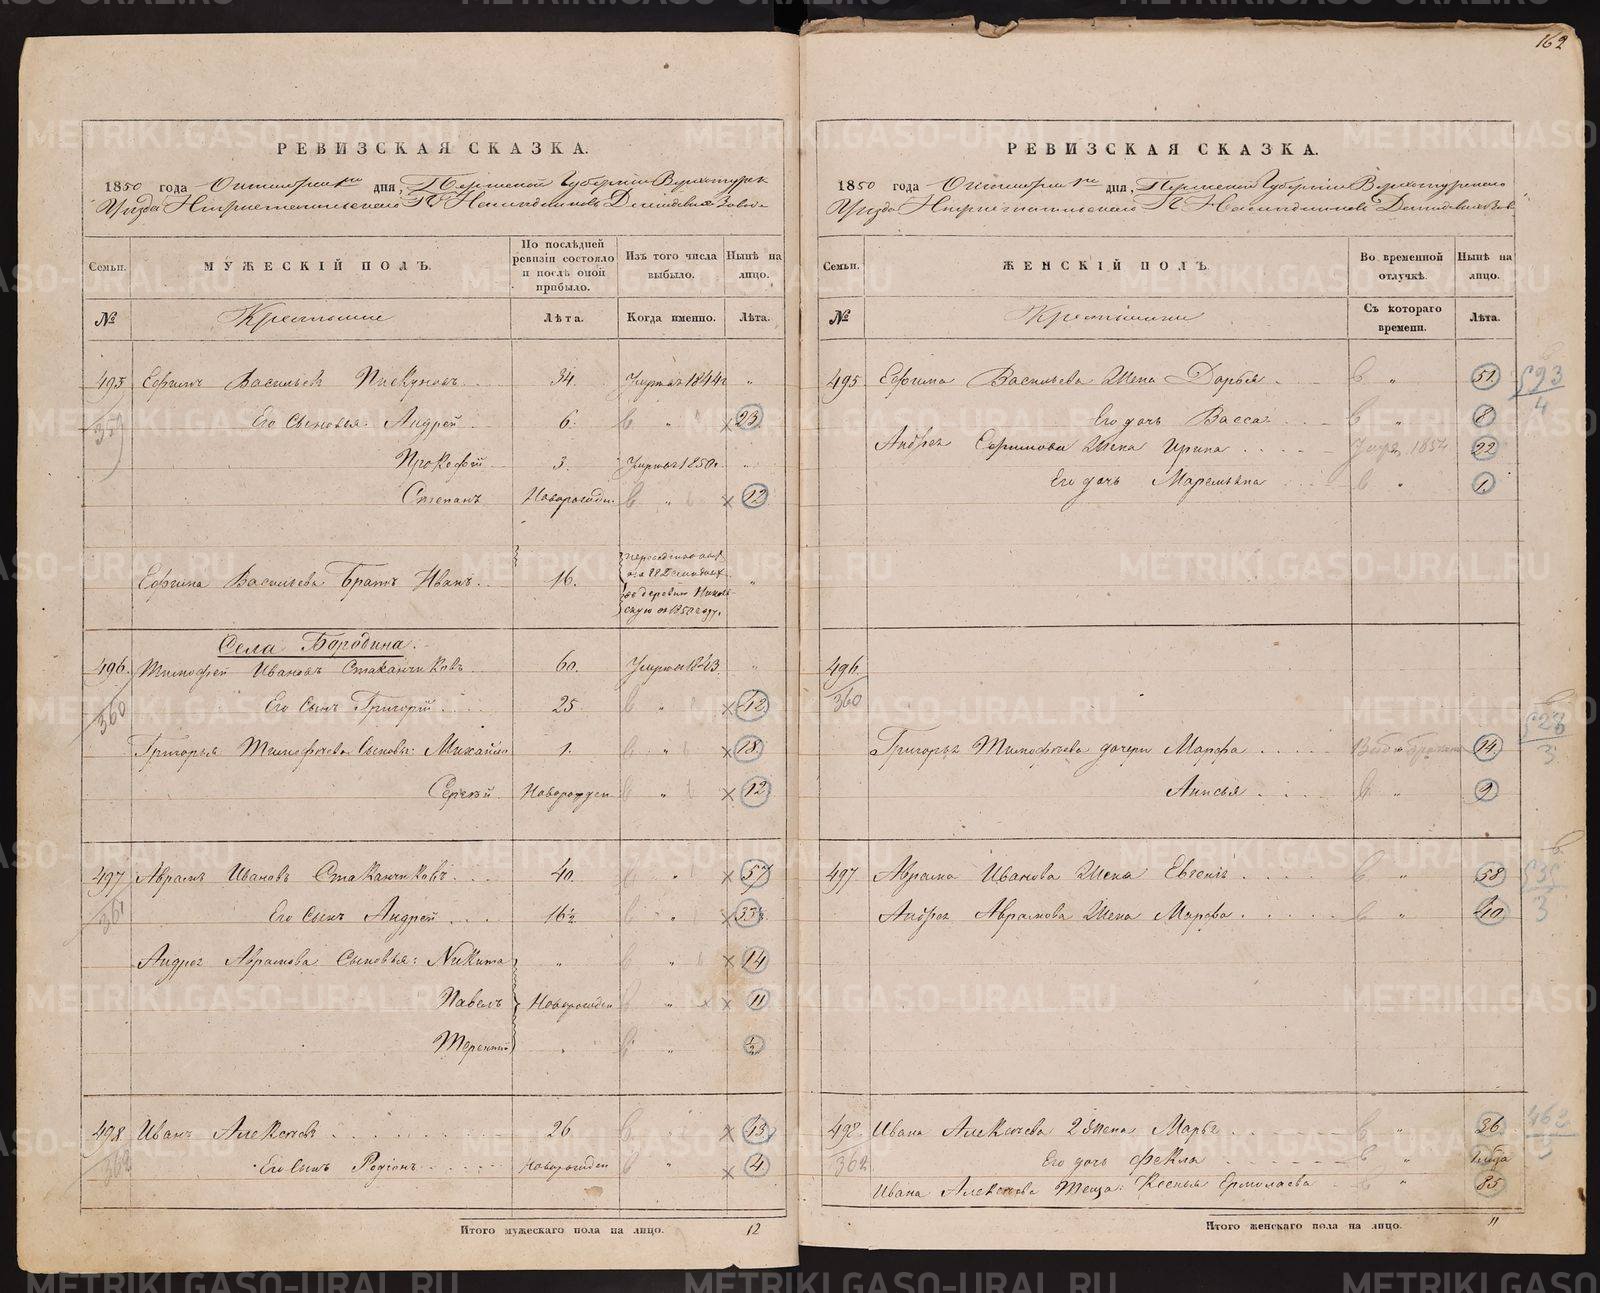 162
РЕВИЗСКАЯ СКАЗКА.
1850 года Октября дня, Пермской Губернии Верхотурск
Уезда Нижнетагильскаго Наследников Демидовых Завода
Семьи.
МУЖЕСКІЙ ПОЛЪ.
По послѣдней ревизіи состояло и послѣ оной прибыло.
Изъ того числа выбыло.
Нынѣ на лицо.
№
Крестьяне
Лѣта.
Когда именно.
Лѣта.
495 Ефимъ Васильевъ Пискуновъ 34. Умеръ 1844 "
359 Его Сыновья: Андрей 6. " 23
Прокофій 3. Умеръ 1850.
Степанъ Новорожден. " 12
Ефима Васильева Братъ Иванъ. 16. въ деревню 1850 году. "
Села Бородина.
496. Тимофей Ивановъ Стаканчиковъ 60. Умеръ 1843 "
360 Его Сынъ Григорій 25 " 42
Григорья Тимофеева Сыновья: Михайло 1. " 18
Сергей Новорожден " 12
497 Аврамъ Ивановъ Стаканчиковъ 40. " 57
361 Его Сынъ Андрей 16½ " 33½
Андрея Аврамова Сыновья: Никита " " 14
Павелъ Новорожден " 11
Терентий " ½
498 Иванъ Алексеевъ 26 " 43
362 Его Сынъ Родіонъ Новорожден " 4
Итого мужескаго пола на лицо. 12
РЕВИЗСКАЯ СКАЗКА.
1850 года Октября дня, Пермской Губерніи Верхотурскаго
Уезда Нижнетагильскаго Наследниковъ Демидовыхъ Зав
Семьи.
ЖЕНСКІЙ ПОЛЪ.
Во временной отлучкѣ.
Нынѣ на лицо.
№
Крестьянки
Съ котораго времени.
Лѣта.
495 Ефима Васильева Жена Дарья " 51
Его дочь Васса " 8
Андрея Ефимова Жена Ирина 22
Его дочь Маремьяна " 1
496.
360
Григорья Тимофеева дочери Марфа 14
Анисья " 9
497 Аврама Иванова Жена Евгенія " 58
Андрея Аврамова Жена Марфа " 40
498 Ивана Алексеева 2 Жена Марья " 36
362 Его дочь Фекла "
Ивана Алексеева Теща: Ксенья Ермолаева " 85
Итого женскаго пола на лицо. 11
METRIKI.GASO-URAL.RU